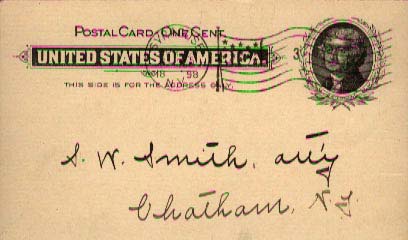 POSTAL CARD ONE CENT.
UNITED STATES OF AMERICA.
THIS SIDE IS FOR THE ADDRESS ONLY.
98
N.Y.
3
S. W. Smith, atty
Chatham, N.Y.